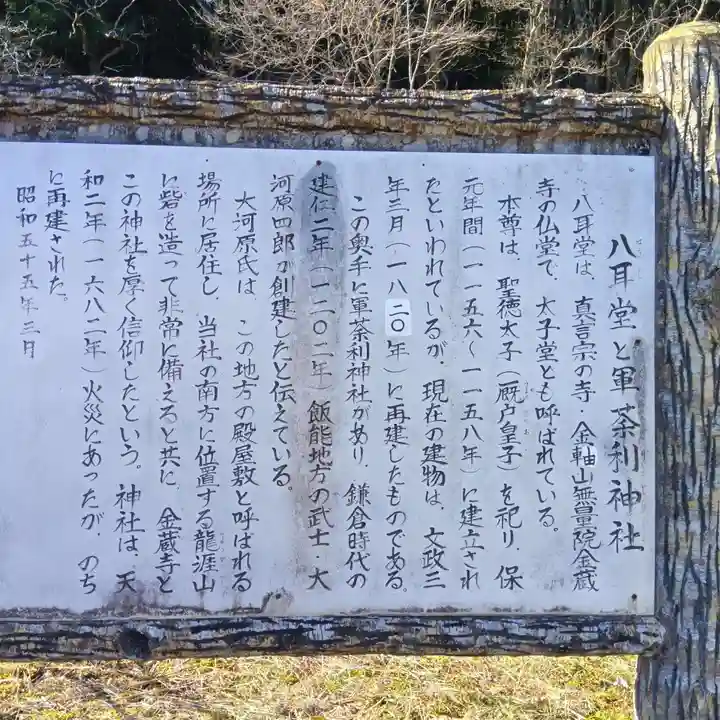 八耳堂と軍荼利神社
八耳堂は、真言宗の寺・金軸山無量院金蔵
寺の仏堂で、太子堂とも呼ばれている。
本尊は、聖徳太子(厩戸皇子)を祀り、保
元年間(一一五六〜一一五八年)に建立され
たといわれているが、現在の建物は、文政三
年三月(一八二〇年)に再建したものである。
この奥手に軍荼利神社があり、鎌倉時代の
建仁二年(一二〇二年)飯能地方の武士・大
河原四郎が創建したと伝えている。
大河原氏は、この地方の殿屋敷と呼ばれる
場所に居住し、当社の南方に位置する龍涯山
に砦を造って非常に備えると共に、金蔵寺と
この神社を厚く信仰したという。神社は、天
和二年(一六八二年)火災にあったが、のち
に再建された。
昭和五十五年三月